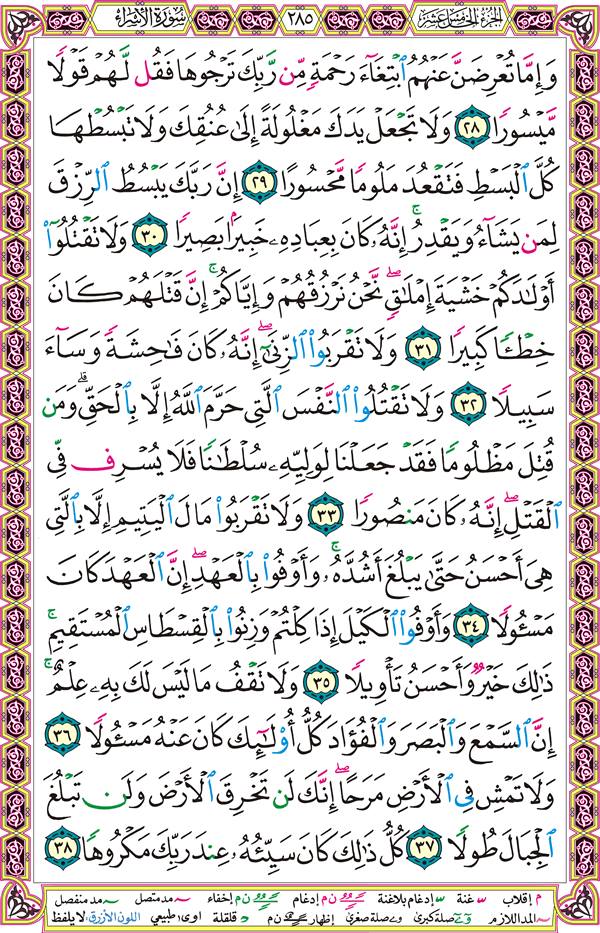 الجزء الخامس عشر ٢٨٥ سورة الإسراء
وَإِمَّا تُعْرِضَنَّ عَنْهُمُ ٱبْتِغَآءَ رَحْمَةٍ مِّن رَّبِّكَ تَرْجُوهَا فَقُل لَّهُمْ قَوْلًا
مَّيْسُورًا ٢٨ وَلَا تَجْعَلْ يَدَكَ مَغْلُولَةً إِلَىٰ عُنُقِكَ وَلَا تَبْسُطْهَا
كُلَّ ٱلْبَسْطِ فَتَقْعُدَ مَلُومًا مَّحْسُورًا ٢٩ إِنَّ رَبَّكَ يَبْسُطُ ٱلرِّزْقَ
لِمَن يَشَآءُ وَيَقْدِرُ ۚ إِنَّهُۥ كَانَ بِعِبَادِهِۦ خَبِيرًۢا بَصِيرًا ٣٠ وَلَا تَقْتُلُوٓا۟
أَوْلَـٰدَكُمْ خَشْيَةَ إِمْلَـٰقٍ ۖ نَّحْنُ نَرْزُقُهُمْ وَإِيَّاكُمْ ۚ إِنَّ قَتْلَهُمْ كَانَ
خِطْـًٔا كَبِيرًا ٣١ وَلَا تَقْرَبُوا۟ ٱلزِّنَىٰٓ ۖ إِنَّهُۥ كَانَ فَـٰحِشَةً وَسَآءَ
سَبِيلًا ٣٢ وَلَا تَقْتُلُوا۟ ٱلنَّفْسَ ٱلَّتِى حَرَّمَ ٱللَّهُ إِلَّا بِٱلْحَقِّ ۗ وَمَن
قُتِلَ مَظْلُومًا فَقَدْ جَعَلْنَا لِوَلِيِّهِۦ سُلْطَـٰنًا فَلَا يُسْرِف فِّى
ٱلْقَتْلِ ۖ إِنَّهُۥ كَانَ مَنصُورًا ٣٣ وَلَا تَقْرَبُوا۟ مَالَ ٱلْيَتِيمِ إِلَّا بِٱلَّتِى
هِىَ أَحْسَنُ حَتَّىٰ يَبْلُغَ أَشُدَّهُۥ ۚ وَأَوْفُوا۟ بِٱلْعَهْدِ ۖ إِنَّ ٱلْعَهْدَ كَانَ
مَسْـُٔولًا ٣٤ وَأَوْفُوا۟ ٱلْكَيْلَ إِذَا كِلْتُمْ وَزِنُوا۟ بِٱلْقِسْطَاسِ ٱلْمُسْتَقِيمِ ۚ
ذَٰلِكَ خَيْرٌ وَأَحْسَنُ تَأْوِيلًا ٣٥ وَلَا تَقْفُ مَا لَيْسَ لَكَ بِهِۦ عِلْمٌ ۚ
إِنَّ ٱلسَّمْعَ وَٱلْبَصَرَ وَٱلْفُؤَادَ كُلُّ أُو۟لَـٰٓئِكَ كَانَ عَنْهُ مَسْـُٔولًا ٣٦
وَلَا تَمْشِ فِى ٱلْأَرْضِ مَرَحًا ۖ إِنَّكَ لَن تَخْرِقَ ٱلْأَرْضَ وَلَن تَبْلُغَ
ٱلْجِبَالَ طُولًا ٣٧ كُلُّ ذَٰلِكَ كَانَ سَيِّئُهُۥ عِندَ رَبِّكَ مَكْرُوهًا ٣٨
م إقلاب غنة إدغام بلاغنة ن م إدغام ن م إخفاء مد متصل مد منفصل
المد اللازم صلة كبرى صلة صغرى إظهار ن م قلقلة اوى طبيعي اللون الأزرق: لا يلفظ